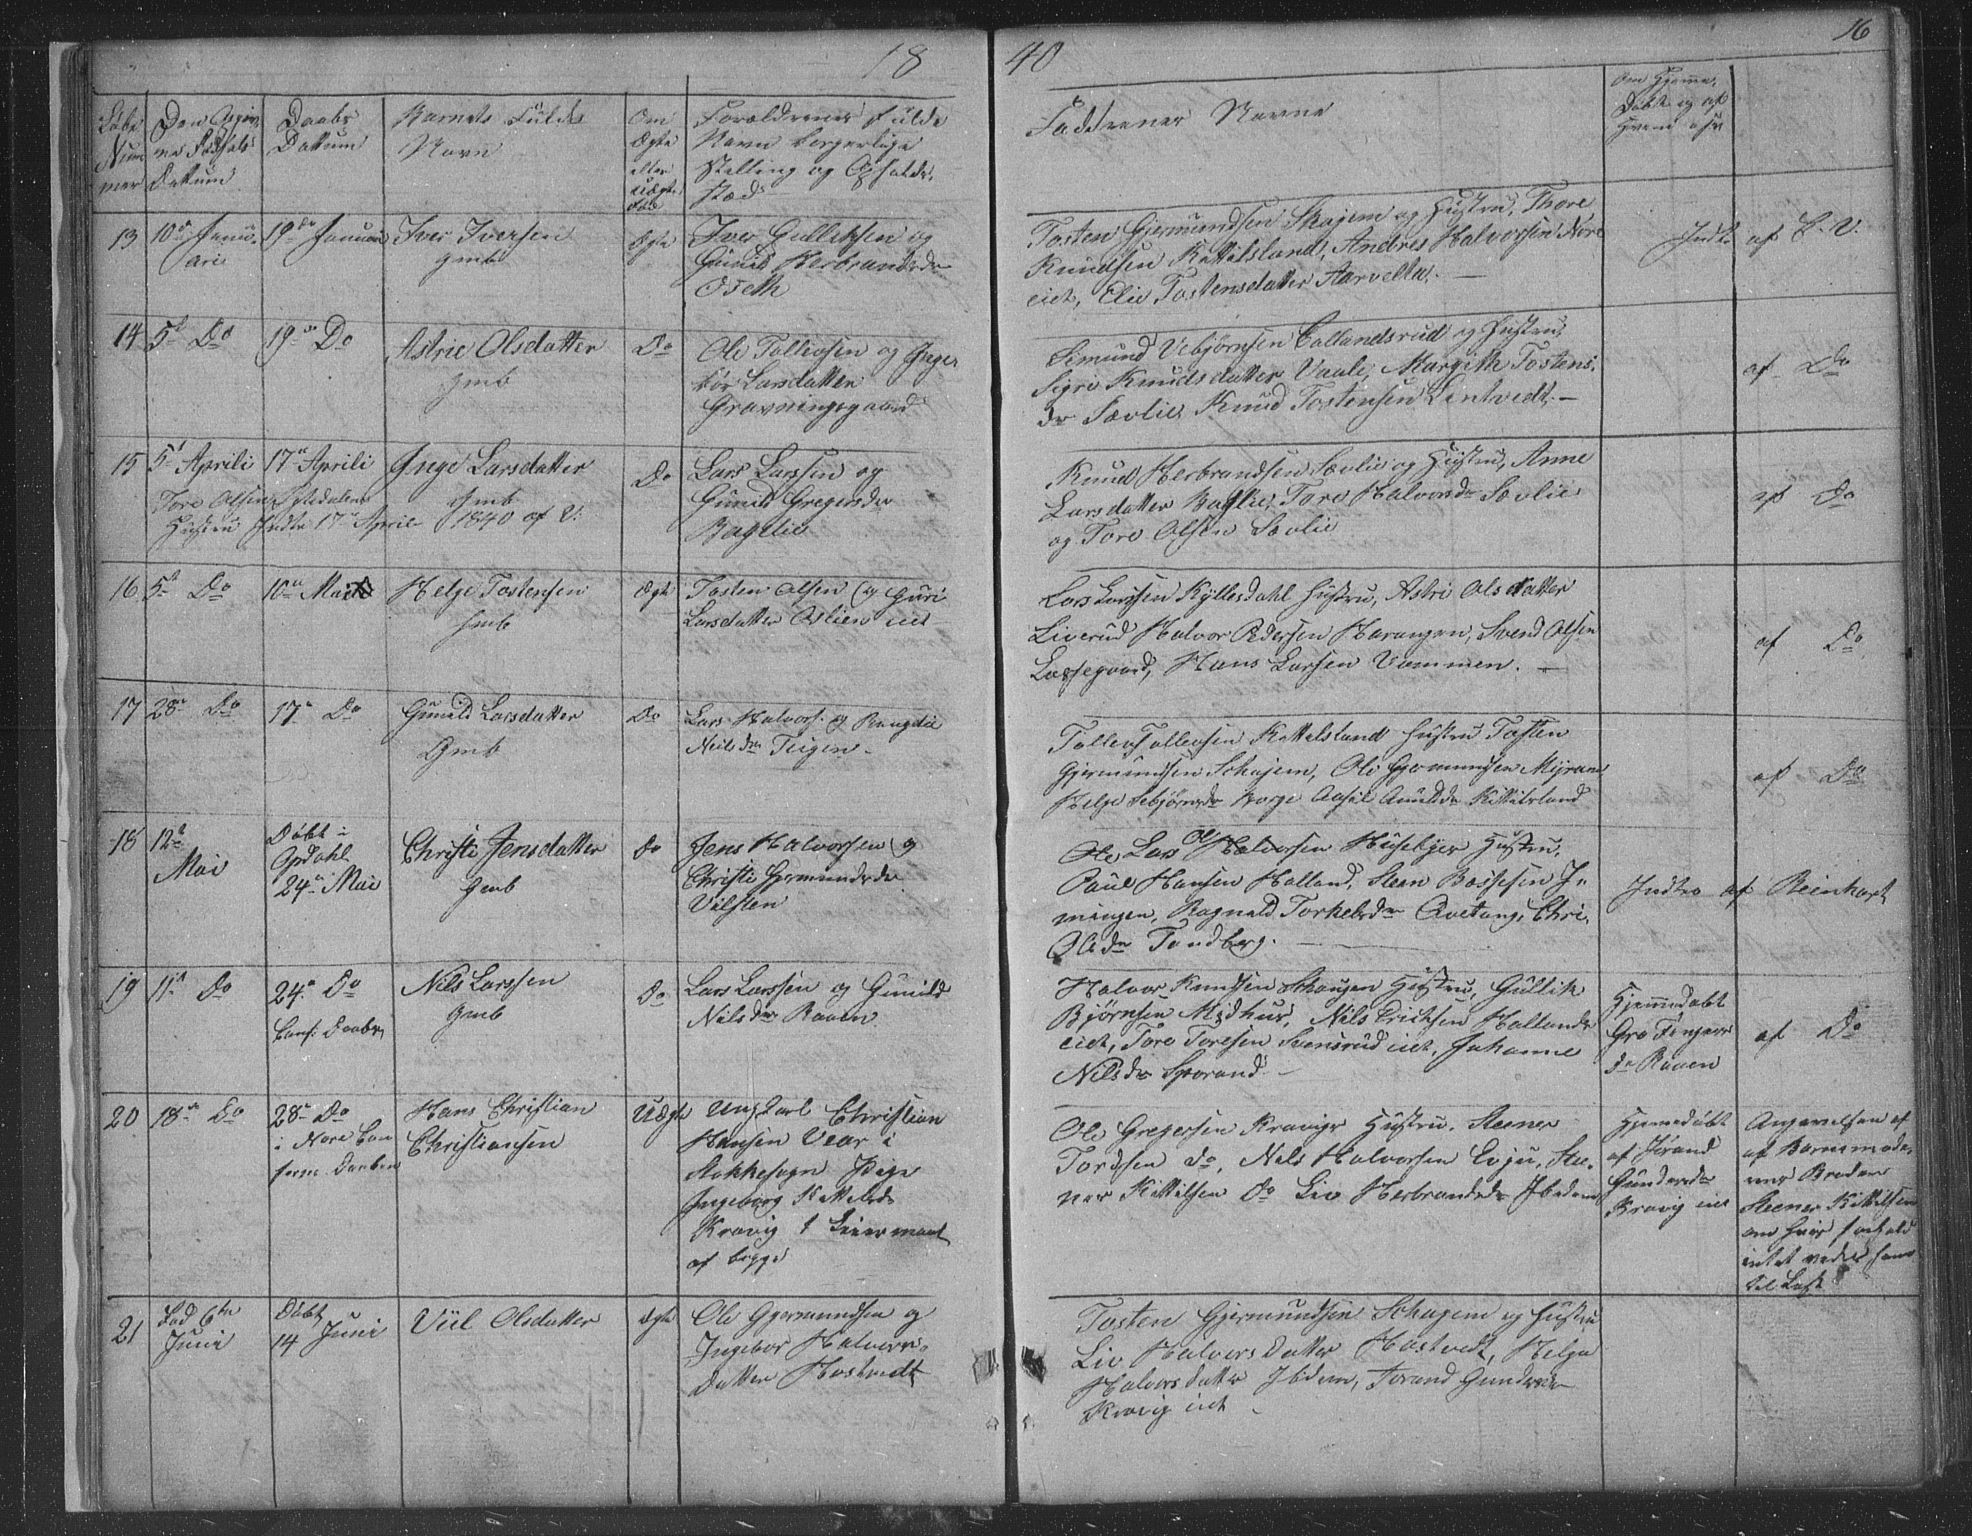 18
40
16
Løbe Nummer
Den Angivne Fødsels Dattum
Daabs Dattum
Barnets Fulde Navn
Om Ægte eller Uægte Fød
Forældrenes Fulde Navn borgerlige Stelling og Opholds-Stæd
Faddrenes Navne
Om Hjemme-Døbt og af Hvem
13
10de Janu-
arii
19de Januarii
Iver Iversen
gmb
Ægte
Iver Gulliksen og
Gunild Herbrandsdr
Oseth
Tosten Gjermundsen Skajem og Hustru, Thore
Knudsen Kittilsland, Andres Halvorsen Nore
eiet, Elie Tostensdatter Aarvelta.
Indtr af C. V.
14
5t Do
19de Do
Astrie Olsdatter
Gmb
Do
Ole Tollevsen og Inge-
bor Larsdatter
Gravningsgaard
Simund Vebjørnsen Tallandsrud og Hustru
Sigri Knudsdatter Vaale, Margith Tostens-
dr Sævlie Knud Tostensen Lintvedt.
af Do
15
5t Aprili
17de Aprili
Inge Larsdatter
Gmb
Do
Lars Larssen og
Gunild Gregersdr
Baglie
Tore Olsen
Hustru Indtr 17de Aprile 1840 af V.
Knud Herbrandsen Sævlie og Hustru, Anne
Larsdatter Baglie, Tore Halvorsdr Sævlie
og Tore Olsen Sævlie
af Do
16
5t Do
10de Mai
Helge Tostensen
Gmb
Ægte
Tosten Olsen og Guri
Larsdatter Aslien eiet
Lars Larssen Kyllesdahl Hustru, Astri Olsdatter
Liverud Halvor Pedersen Havangen, Svend Olsen
Lassegaard, Hans Larsen Vammen.
af Do
17
28de Do
17de Do
Gunild Larsdatter
Gmb
Do
Lars Halvors. og Rangdie
Neilsdr Teigen
Tollef Tollevsen Kittelsland Hustru Tosten
Gjermundsen Schajem, Ole Gjermundsen Myrann
Helge Sebjørnsdr Borge Aasil Amundsdr Kittilsland
af Do
18
12te
Mai
Døbt i
Opdahl
24de Mai
Christi Jensdatter
Gmb
Do
Jens Halvorsen og
Christi Gjermundsdr
Vilsten
Lars Halvorsen Husebye Hustru,
Paul Hansen Holland, Steen Bossesen
Ragnild Torkelsdr Qvetang, Chri.
Olsdr Tandberg.
Indtro af Reinhart
19
11t Do
24de Do
Conf: Daaben
Nils Larssen
Gmb
Do
Lars Larssen og Gunild
Nilsdr Raaen
Halvor Knudsen Schaugen Hustru, Gullik
Bjørnsen Midhus, Nils Ericksen Hallands
eiet, Tore Toresen Svensrud eiet, Johanne
Nilsdr Sporand
Hjemmedøbt
Gro
dr Raaen
af Do
20
18de Do
28de Do
i Nore Con
firm. Daaben
Hans Christian
Christiansen
Uægte
Ung Karl Christian
Hansen Vear i
Stokkesogn Pige
Ingeborg Kittelsdr
Kravig 1 Leiermaal
af begge
Ole Gregersen Kravige Hustru. Steener
Tordsen do, Nels Halvorsen Evju, Stee-
ner Kittilsen Do Liv Herbrandsdr Ibidem
Hjemmedøbt
af Jørand
Gundersdr
Kravig eiet
Angivelsen af
af Barnemode-
rens Broder
Steener Kittilsen
om hvis forhold
intet vides ham
til Last
21
Fød 6te
Juni
Døbt
14 Juni
Viil Olsdatter
Ægte
Ole Gjermundsen og
Ingebor Halvors-
datter Hostvedt
Tosten Gjermundsen Schajem og Hustru
Liv Halvorsdatter Hostvedt, Helga
Halvorsdatter Ibidem, Jorand Gundersdr
Kravig eiet